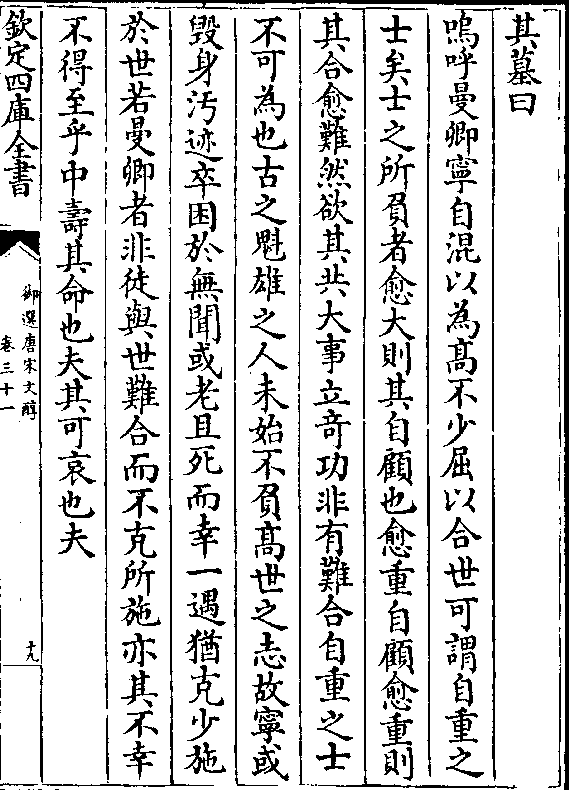 其墓曰
嗚呼曼卿寧自混以為高不少屈以合世可謂自重之
士矣士之所負者愈大則其自顧也愈重自顧愈重則
其合愈難然欲其共大事立奇功非有難合自重之士
不可為也古之魁雄之人未始不負高世之志故寧或
毀身汚迹卒困於無聞或老且死而幸一遇猶克少施
於世若曼卿者非徒與世難合而不克所施亦其不幸
不得至乎中壽其命也夫其可哀也夫
欽定四庫全書
御選唐宋文醇
卷三十一
十九